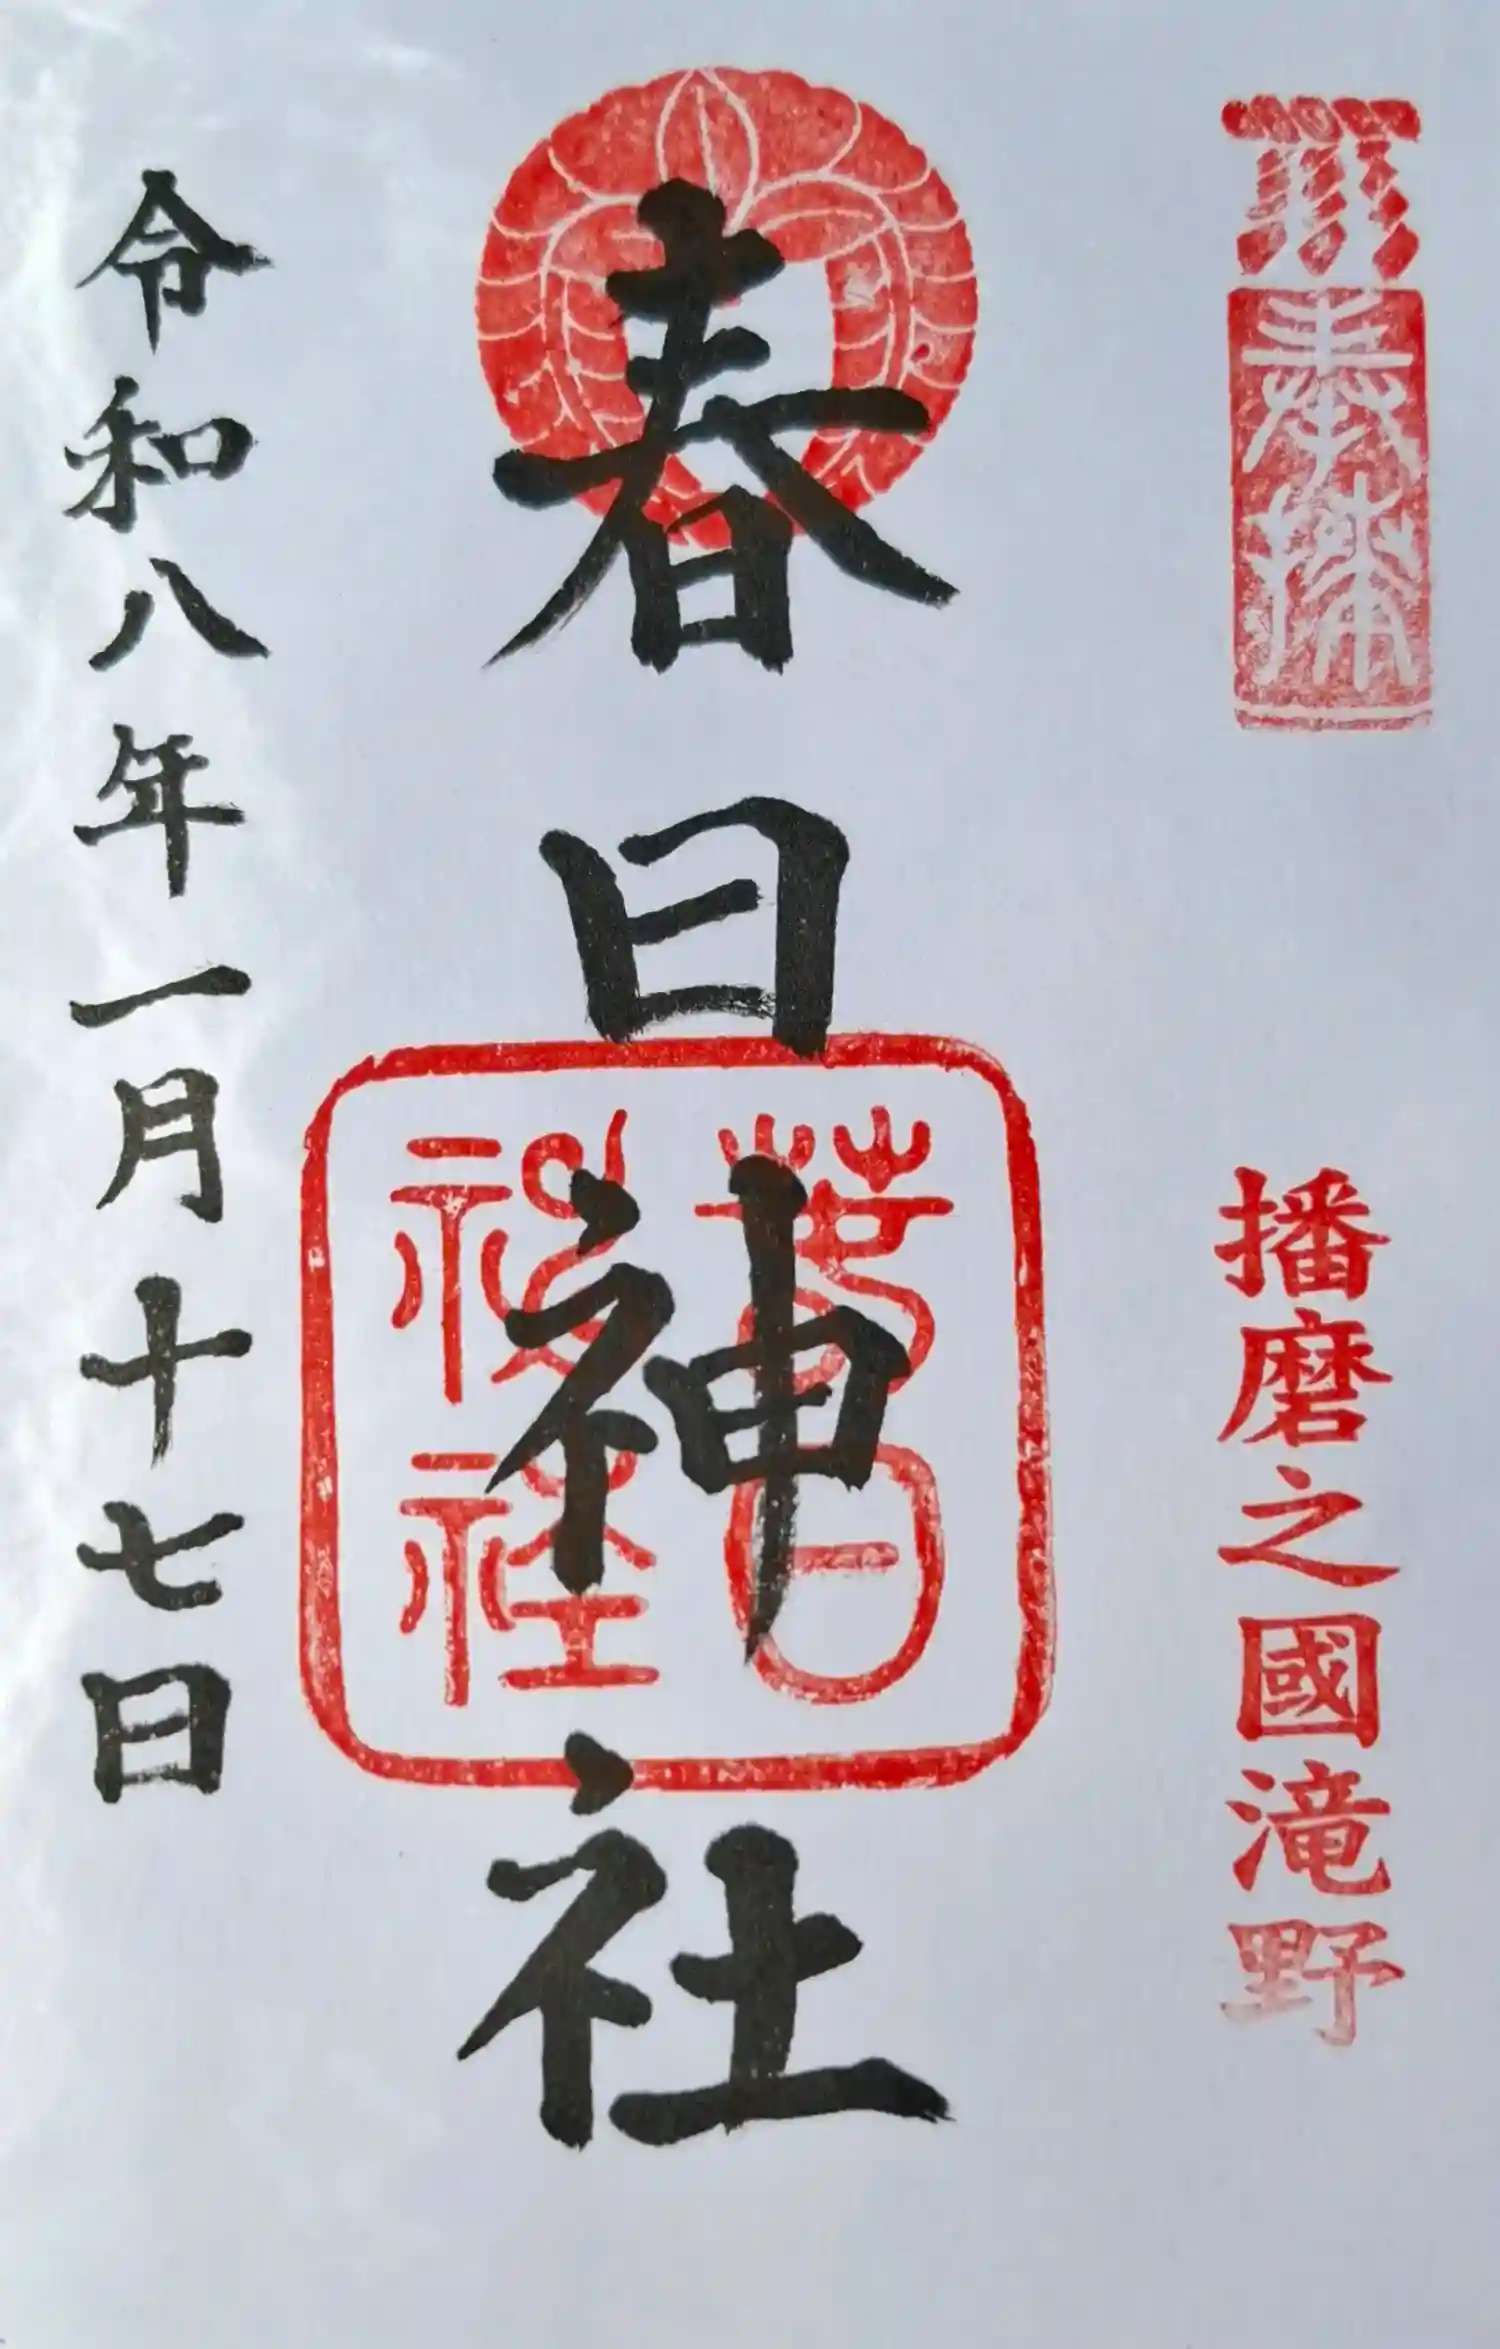 奉拝
播磨之國滝野
春日神社
春日
神社
令和八年一月十七日